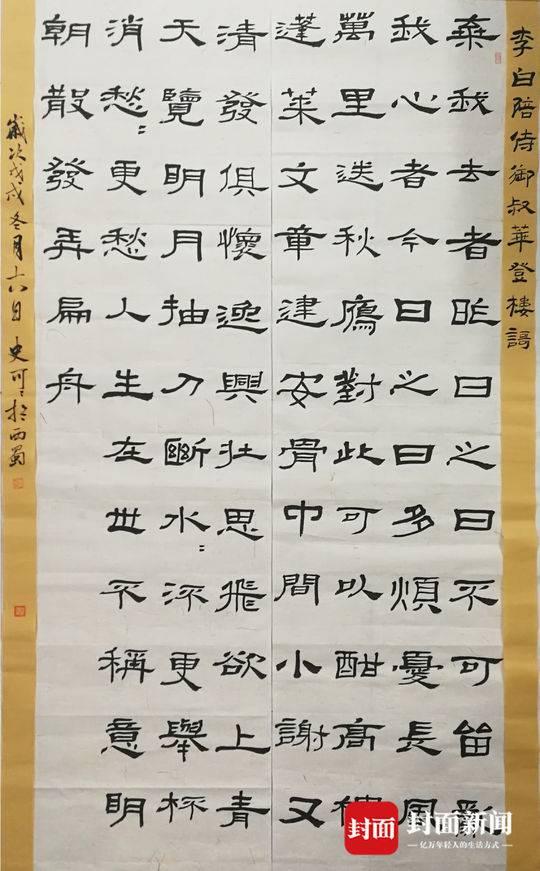 李白陪侍御叔華登樓謌
棄我去者昨日之日不可畱亂
我心者今日之日多煩憂長風
萬里送秋鴈對此可以酣高樓
蓬萊文章建安骨中間小謝又
清發俱懷逸興壯思飛欲上青
天覽明月抽刀斷水〻流更舉杯
消愁〻更愁人生在世不稱意明
朝散發弄扁舟
歲次戊戌冬月十六日 史可〻於西蜀
封面 封面新闻
亿万年轻人的生活方式